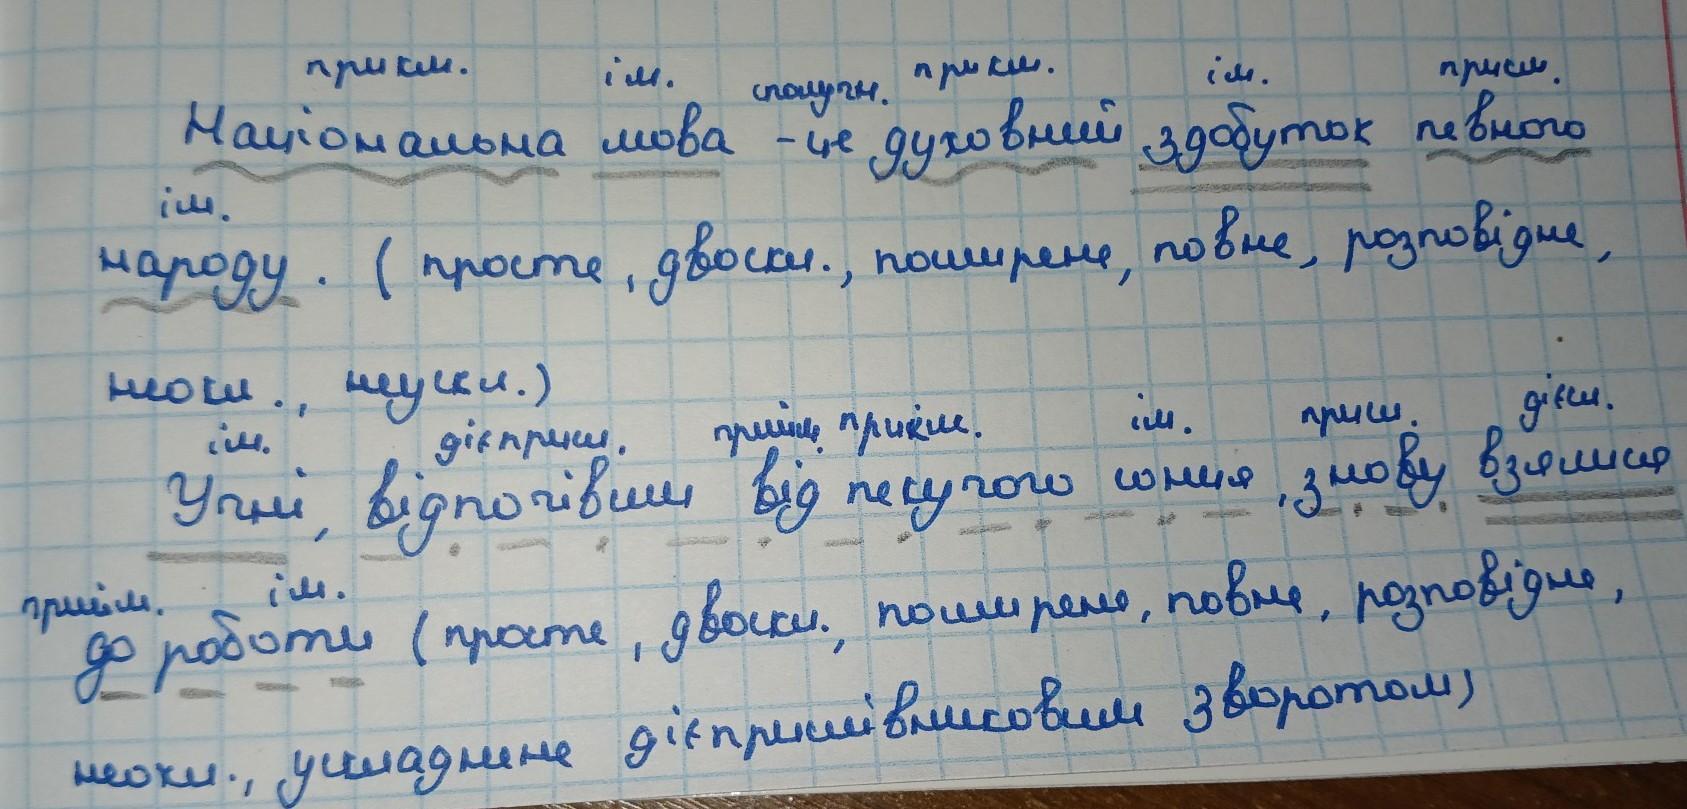 прикм. ім. сполучн. прикм. ім. прикм.
Національна мова - це духовний здобуток певного
ім.
народу. (просте, двоскл., поширене, повне, розповідне,
неокл., неускл.)
ім. дієприсл. прийм. прикм. ім. присл. дієсл.
Учні, відпочівши від пекучого сонця, знову взялися
прийм. ім.
до роботи (просте, двоскл., поширене, повне, розповідне,
неокл., ускладнене дієприслівниковим зворотом)